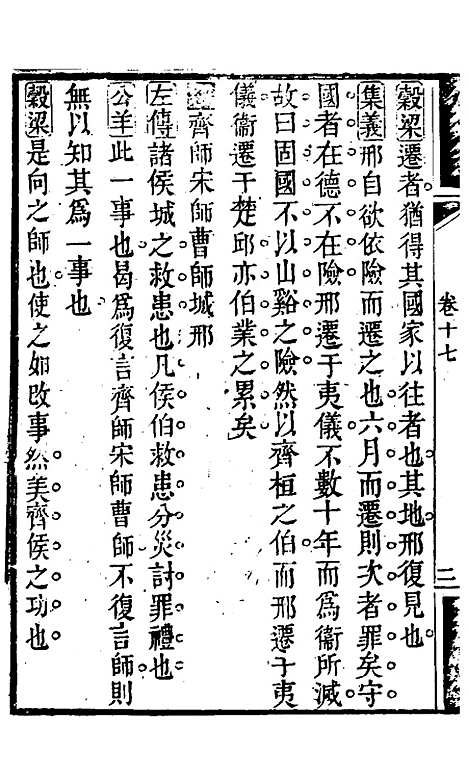 卷十七
二
穀梁遷者猶得其國家以往者也其地邢復見也
集義邢自欲依險而遷之也六月而遷則次者罪矣守
國者在德不在險邢遷于夷儀不數十年而爲衞所滅
故曰固國不以山谿之險然以齊桓之伯而邢遷于夷
儀衞遷于楚邱亦伯業之累矣
經齊師宋師曹師城邢
左傳諸侯城之救患也凡侯伯救患分災討罪禮也
公羊此一事也曷爲復言齊師宋師曹師不復言師則
無以知其爲一事也
穀梁是向之師也使之如改事然美齊侯之功也